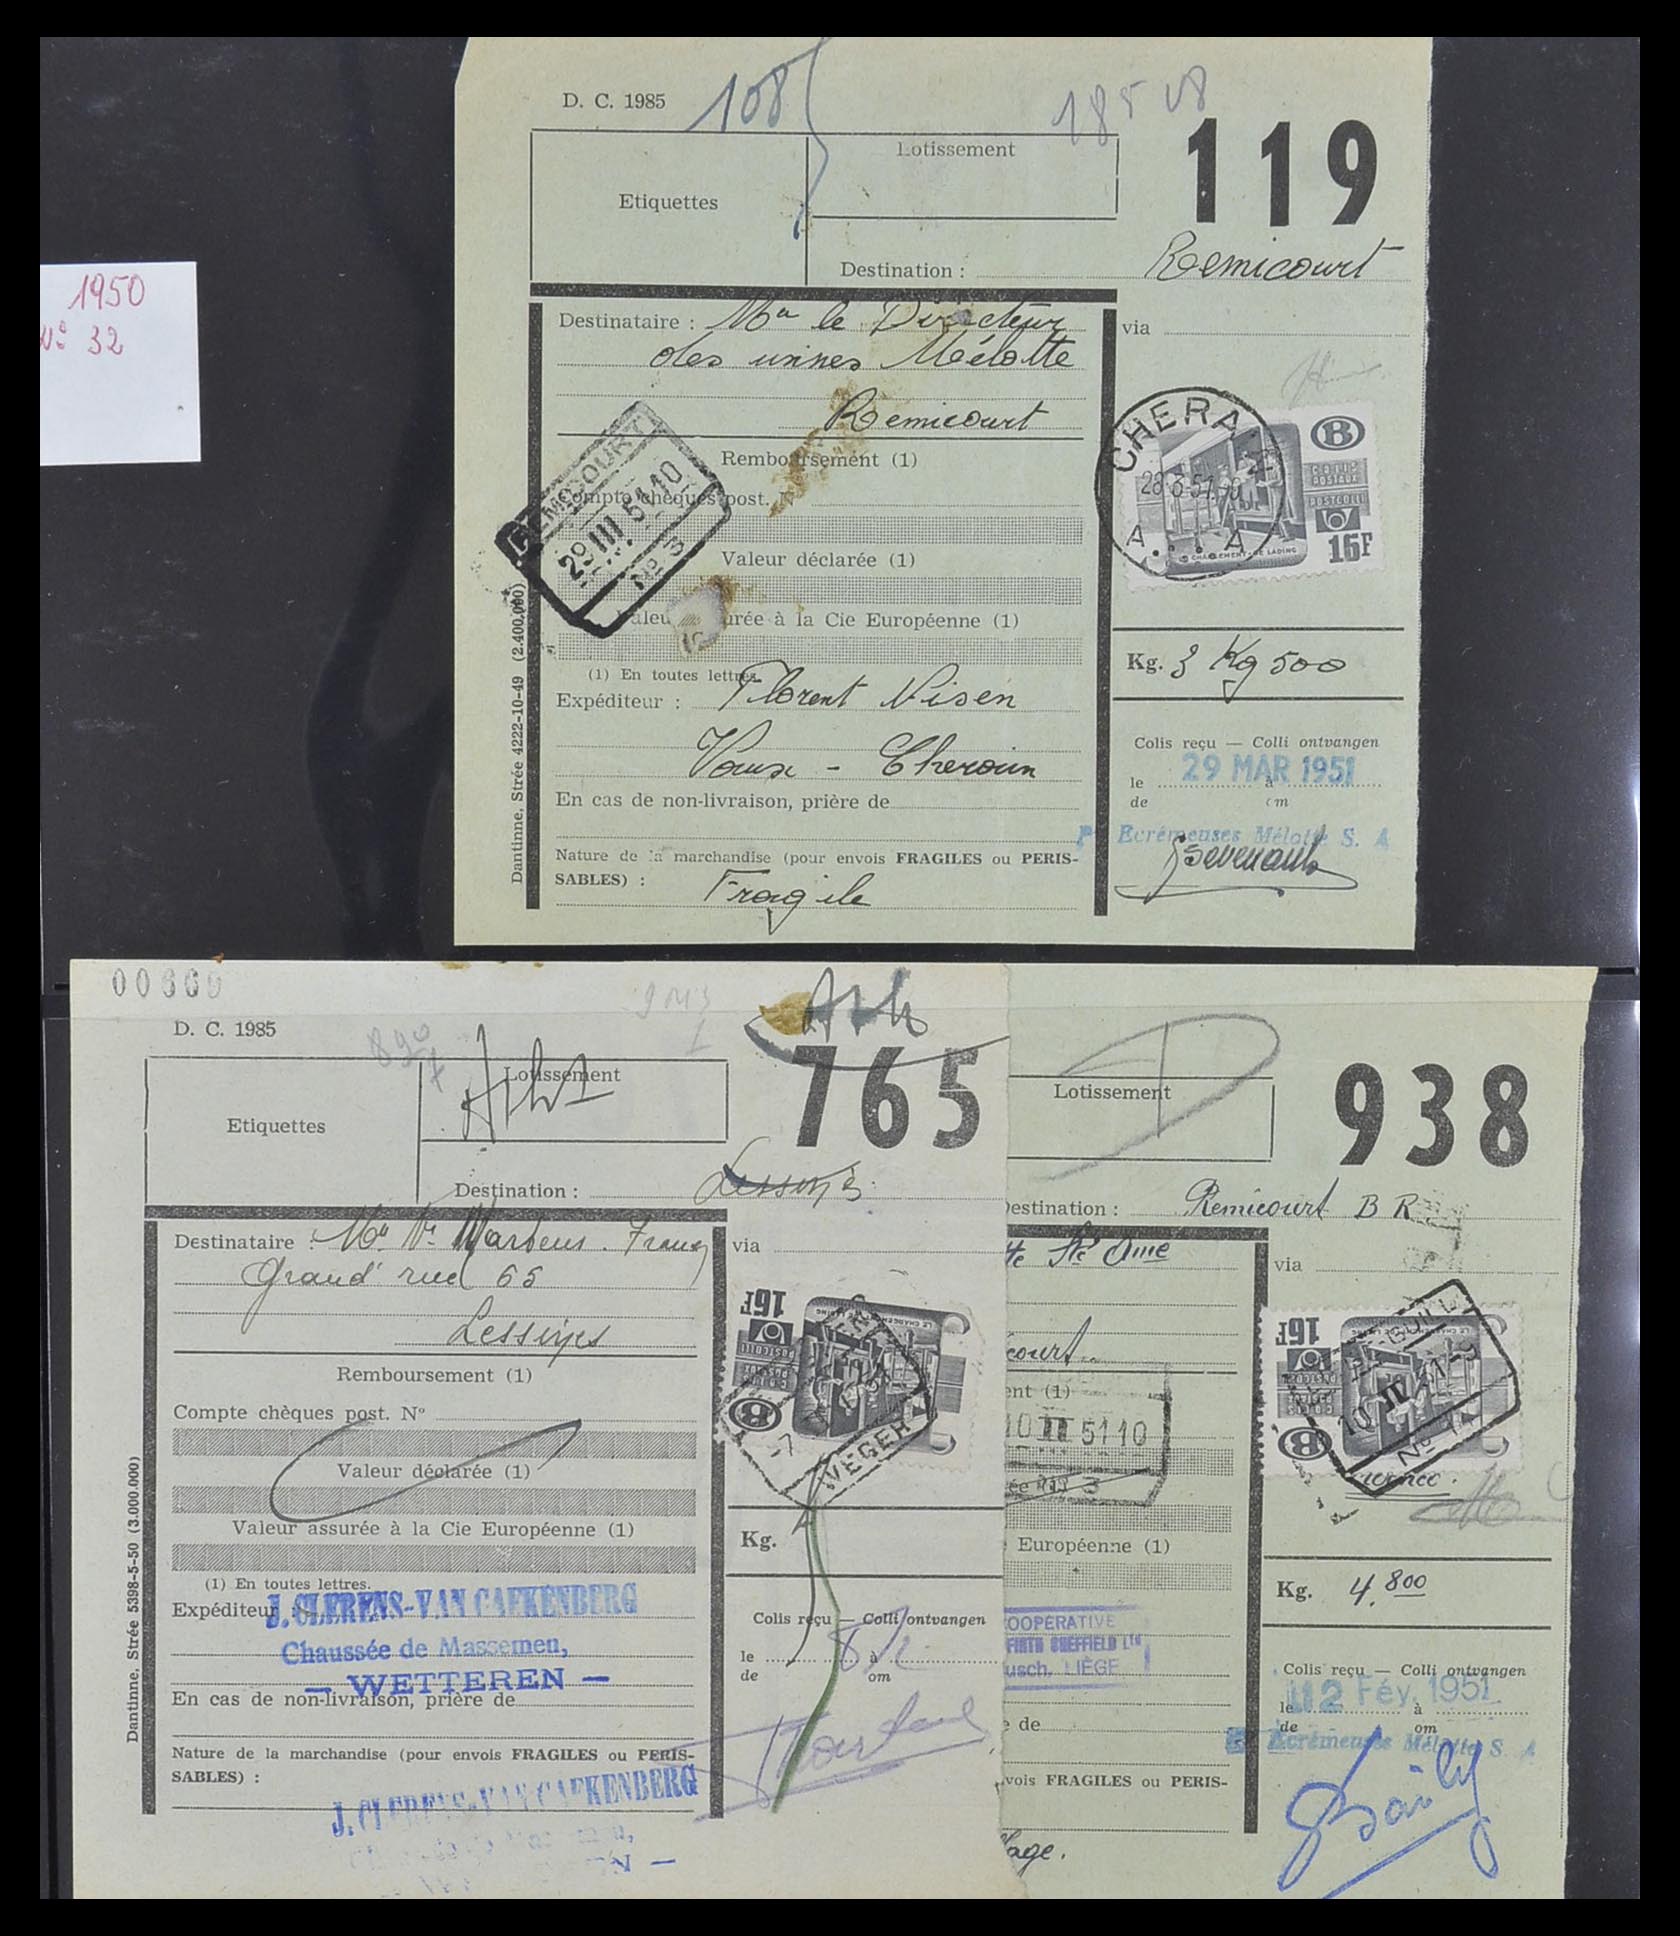 1950
No 32
D. C. 1985
108
185
119
Lotissement
Etiquettes
Destination : Remicourt
Destinataire : Mr le Directeur
des usines Mélotte
Remicourt
via
CHERA
28 3 51
A . . . A
B
COLIS POSTAUX
POSTCOLLI
CHARGEMENT - DE LADING
16F
REMICOURT
29 III 51 10
No 3
Remboursement (1)
Compte chèques post. N
Valeur déclarée (1)
Valeur assurée à la Cie Européenne (1)
(1) En toutes lettres.
Expéditeur : Florent Nisen
Vaux - Cheroin
Kg. 3 Kg 500
Colis reçu — Colli ontvangen
le 29 MAR 1951 à
de om
Ecrémeuses Mélotte S. A
En cas de non-livraison, prière de
Nature de la marchandise (pour envois FRAGILES ou PERIS-
SABLES) :
Fragile
Dantinne, Strée 4222-10-49 (2.400.000)
00660
D. C. 1985
Ath
765
Lotissement
Etiquettes
Destination : Lessines
Destinataire : Mr Franz
Grand' rue 65
Lessines
via
16F
LE CHARGEMENT DE LADING
COLIS POSTAUX
POSTCOLLI
B
Remboursement (1)
Compte chèques post. No
Valeur déclarée (1)
Valeur assurée à la Cie Européenne (1)
(1) En toutes lettres.
Expéditeur :
J. CLERENS-VAN CAEKENBERG
Chaussée de Massemen,
— WETTEREN —
Kg.
Colis reçu — Colli ontvangen
le 8/2 à
de om
En cas de non-livraison, prière de
Nature de la marchandise (pour envois FRAGILES ou PERIS-
SABLES) :
J. CLERENS-VAN CAEKENBERG
Dantinne, Strée 5398-5-50 (3.000.000)
938
Lotissement
Destination : Remicourt B R
tte Sté Ame
via
court
ent (1)
10 II 51 10
3
16F
LE CHARGEMENT DE LADING
B
10 II 51
No 1
Européenne (1)
Kg. 4.800
COOPERATIVE
FIRTH SHEFFIELD Ltd
usch, LIÈGE
Colis reçu — Colli ontvangen
le 12 Fév. 1951 à
de om
Ecrémeuses Mélotte S. A
e de
vois FRAGILES ou PERIS-
age.